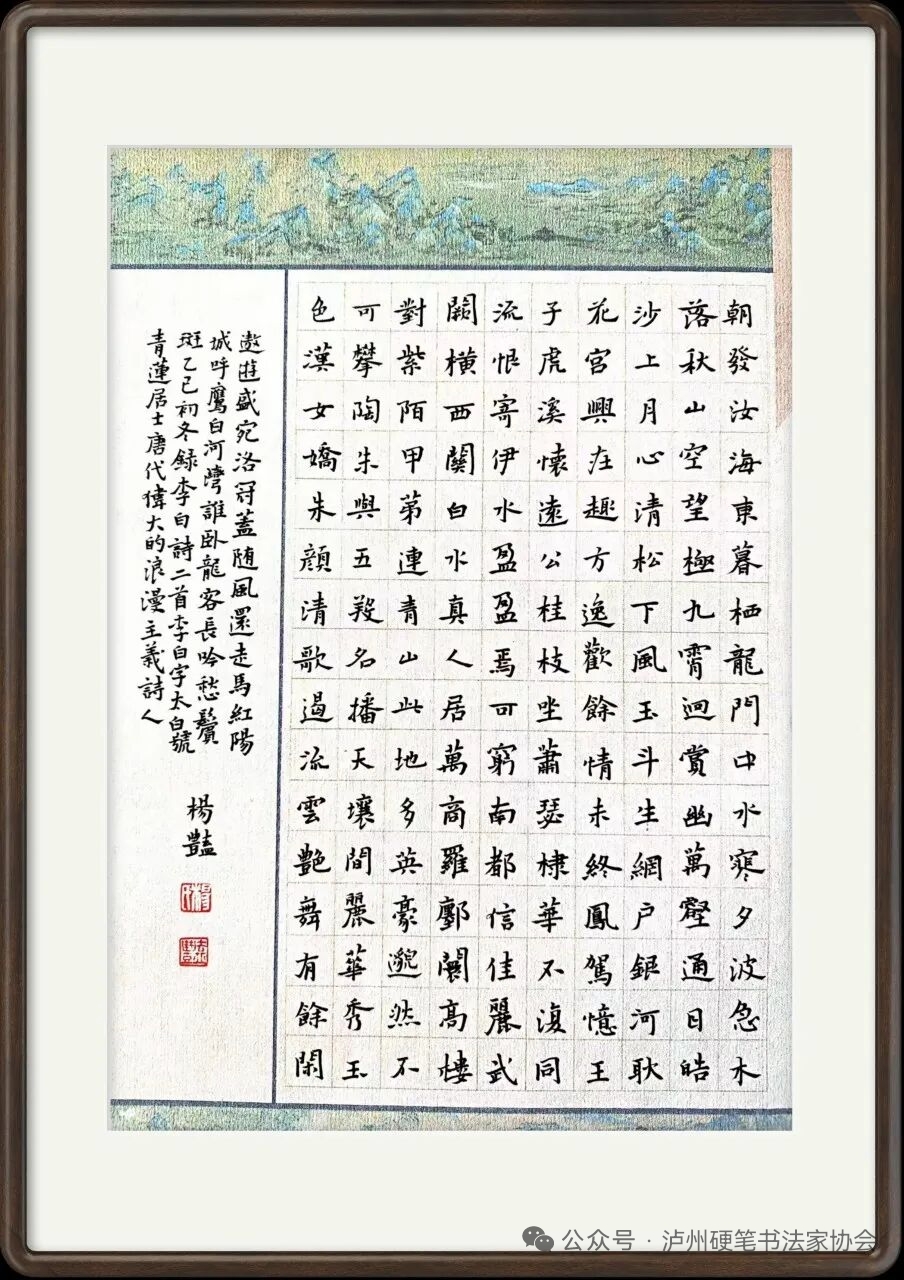 朝發汝海東暮栖龍門中水寒夕波急木
落秋山空望極九霄迥賞幽萬壑通日皓
沙上月心清松下風玉斗生網户銀河耿
花宮興在趣方逸歡餘情未終鳳駕憶王
子虎溪懷遠公桂枝坐蕭瑟棣華不復同
流恨寄伊水盈盈焉可窮南都信佳麗武
闕橫西關白水真人居萬商羅鄽闤高樓
對紫陌甲第連青山此地多英豪邈然不
可攀陶朱與五羖名播天壤間麗華秀玉
色漢女嬌朱顔清歌遏流雲艷舞有餘閑
遨遊盛宛洛冠蓋随風還走馬紅陽
城呼鷹白河灣誰卧龍客長吟愁鬢
斑乙巳初冬録李白詩二首李白字太白號
青蓮居士唐代偉大的浪漫主義詩人
楊豔
公众号·泸州硬笔书法家协会